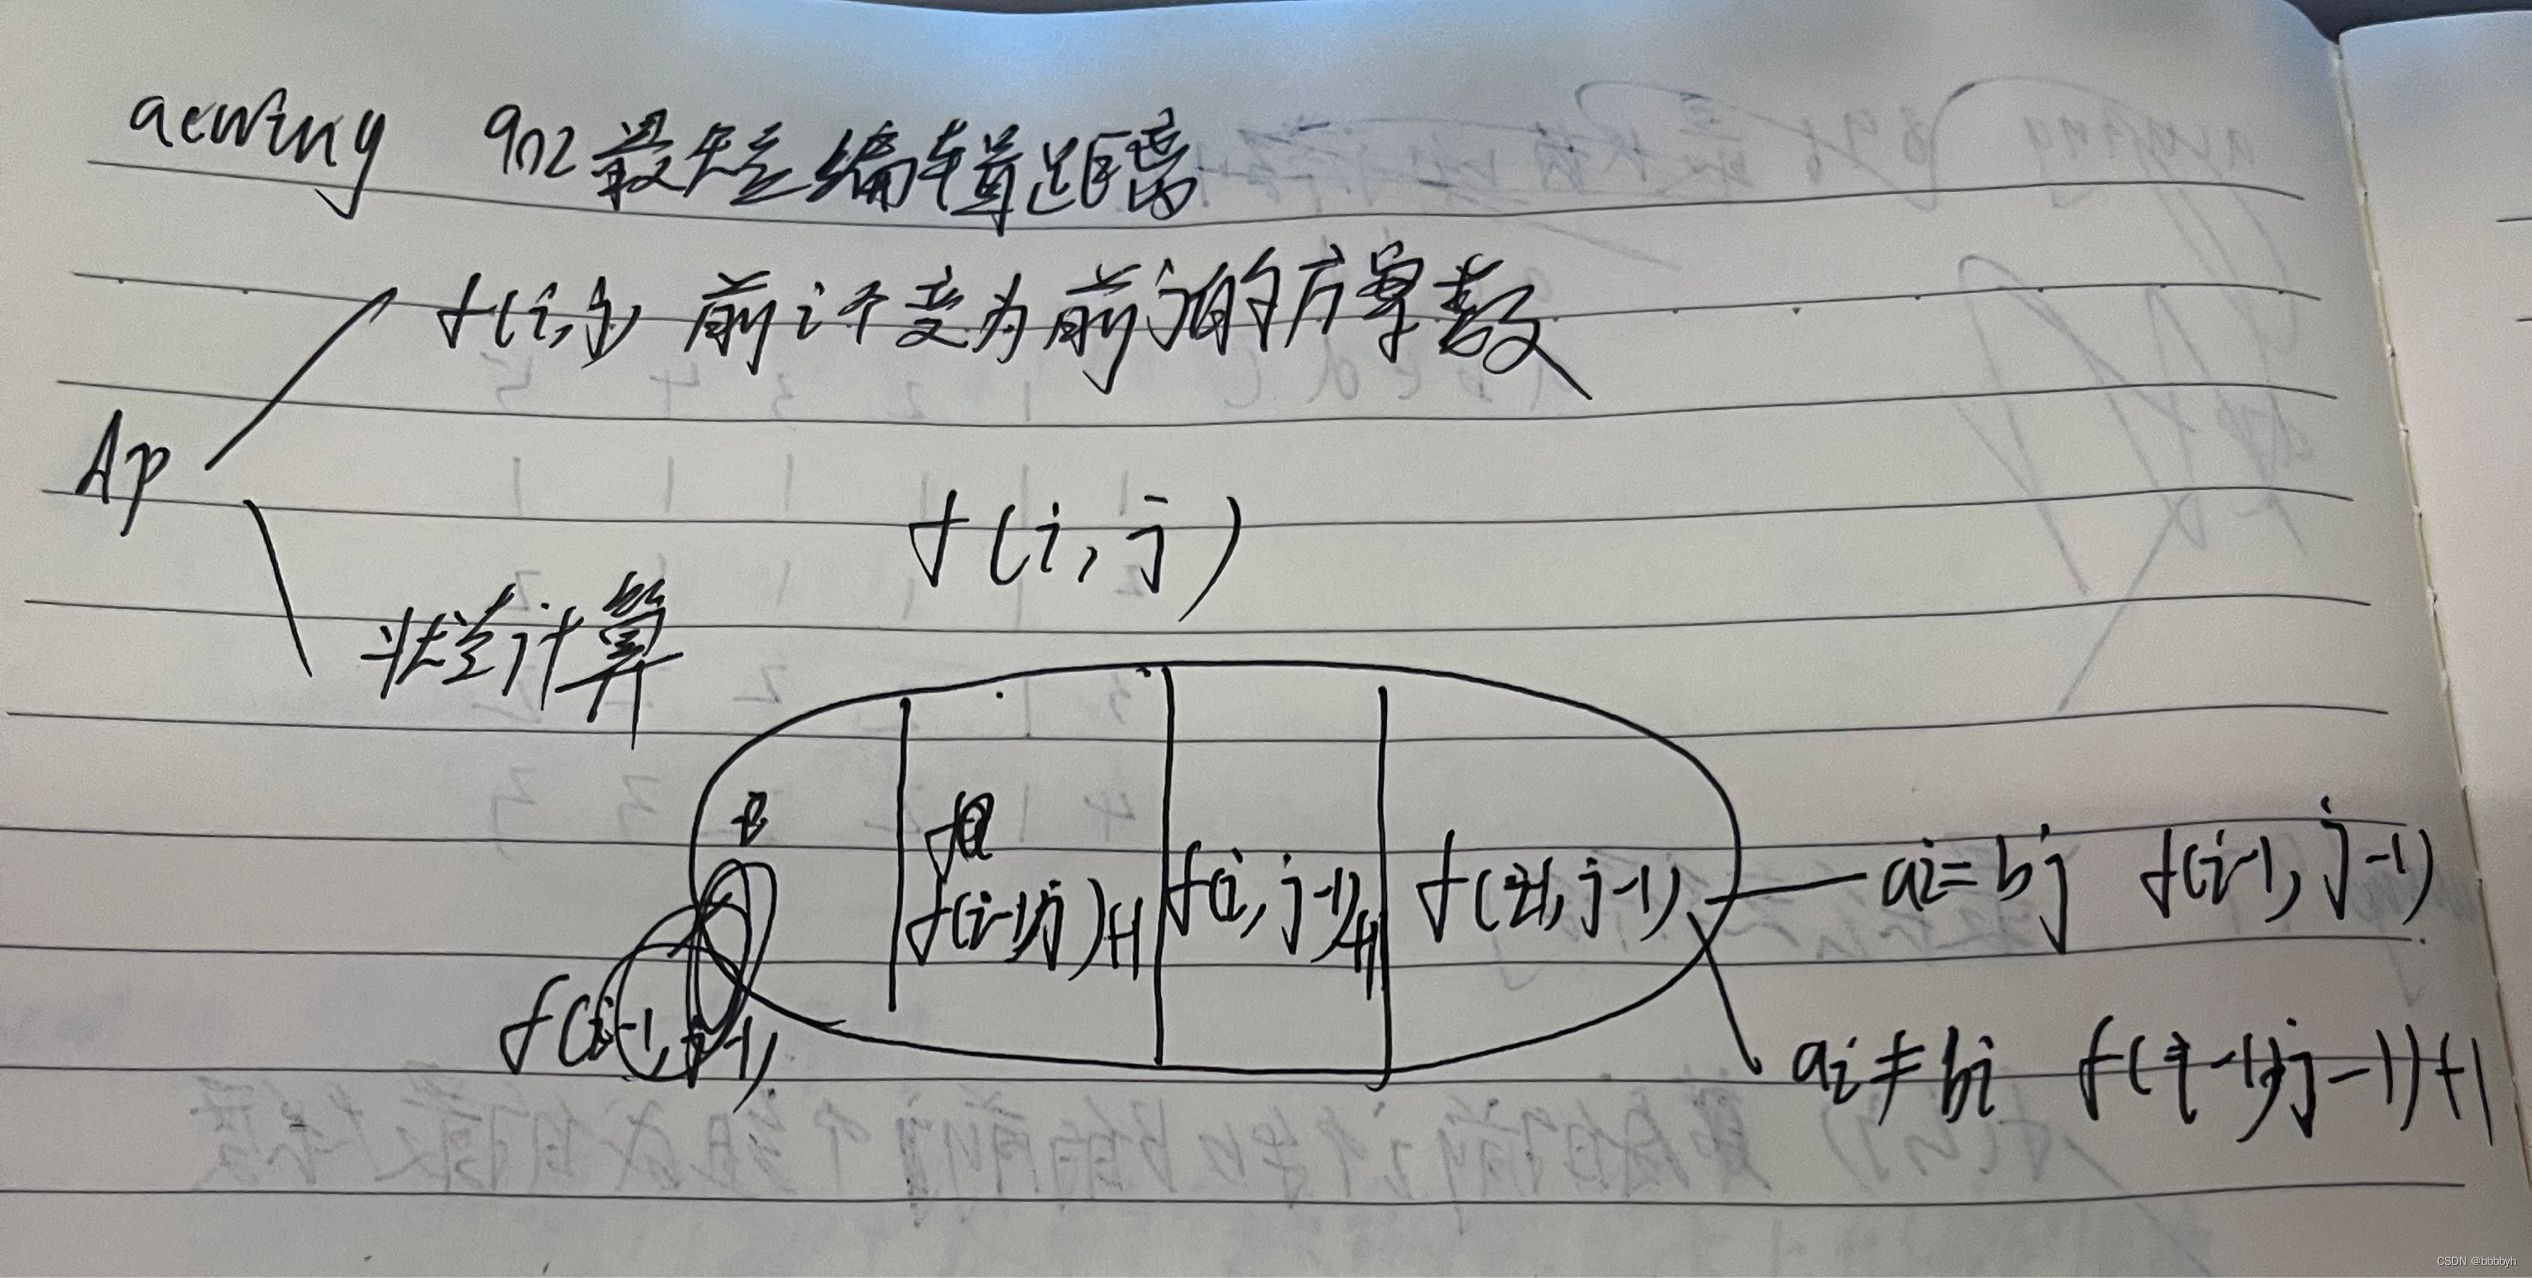 acwing 902 最短编辑距离
f(i,j) 前i个变为前j的方案数
dp
f(i,j)
状态计算
f(i-1,j)+1
f(i,j-1)+1
f(i-1,j-1)
ai=bj f(i-1,j-1)
f(i-1,j-1)
ai≠bi f(i-1,j-1)+1
CSDN @bbbbyh